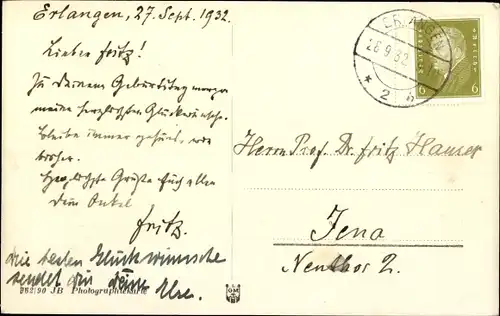 Erlangen, 27. Sept. 1932.
Lieber Fritz!
Zu Deinem Geburtstag morgen
meine herzlichsten Glückwünsche.
Bleibe immer gesund, wie
bisher.
Herzlichste Grüße Euch allen
Dein Onkel
Fritz.
die besten Glückwünsche
sendet dir deine Else.
JB Photographiekarte
ERLANGEN
2
6 6
Herrn Prof. Dr. Fritz Hauser
Jena
2.